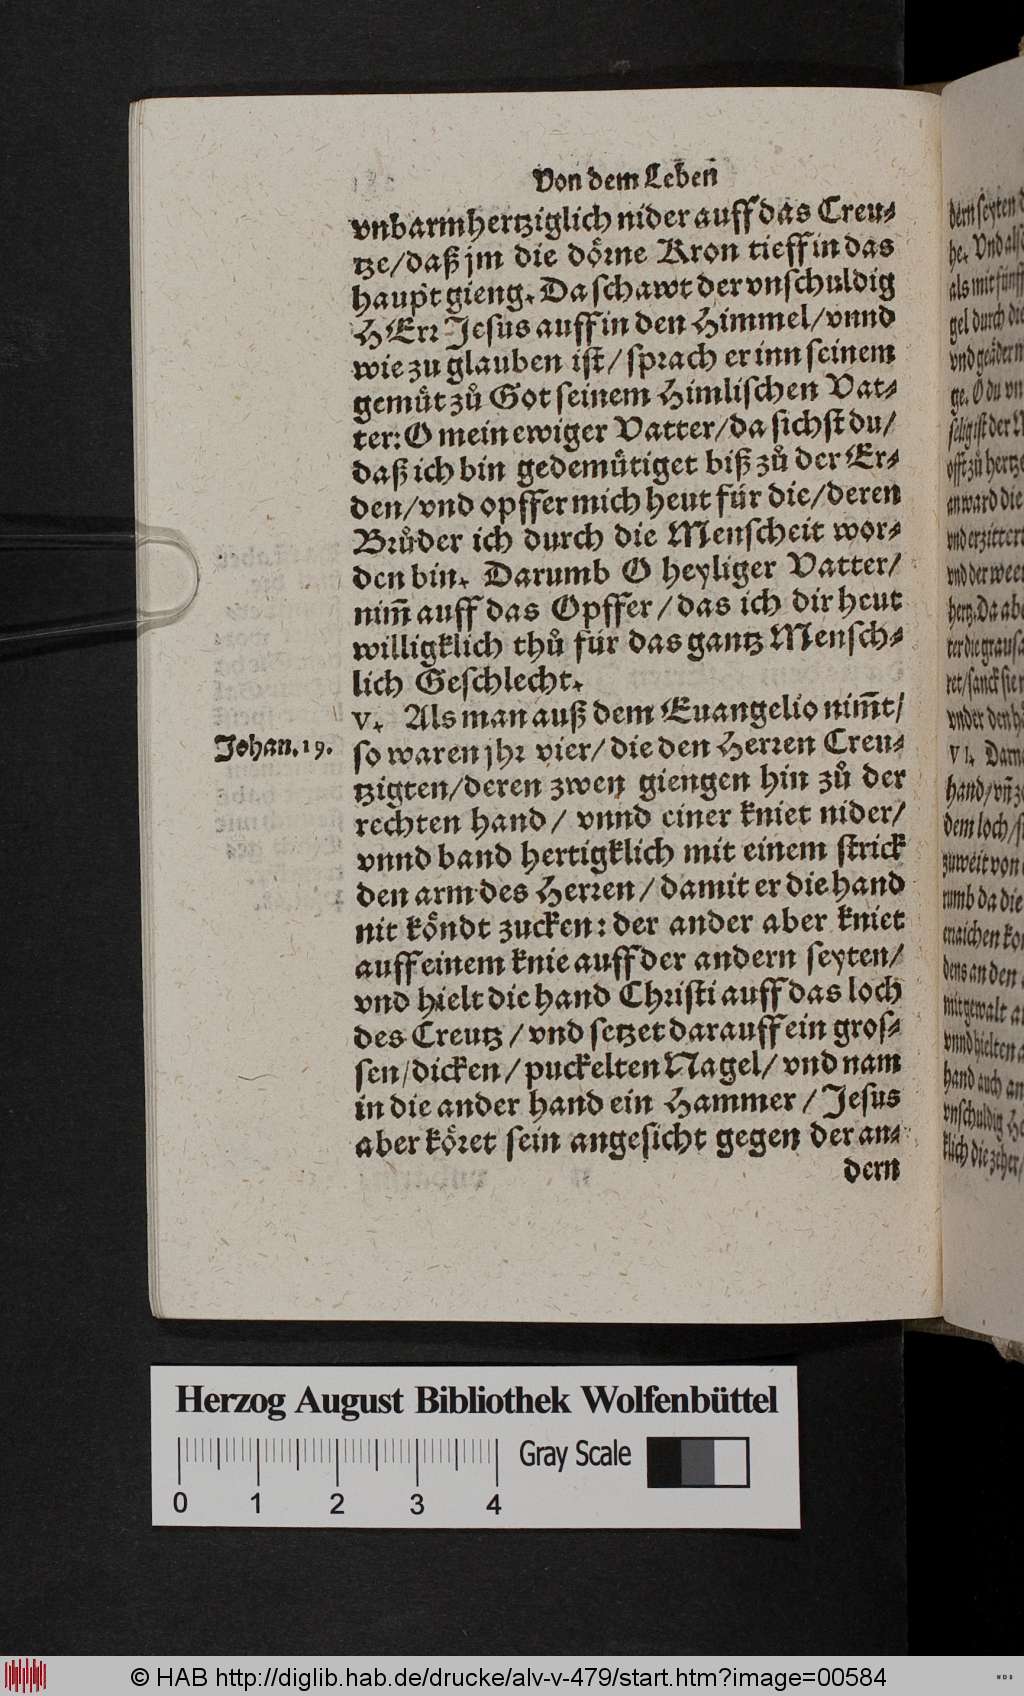 Von dem Leben
vnbarmhertziglich nider auff das Creu⸗
tze/daß jm die dörne Kron tieff in das
haupt gieng. Da schawt der vnschuldig
HErr Jesus auff in den Himmel/vnnd
wie zu glauben ist/sprach er inn seinem
gemüt zů Got seinem Himlischen Vat⸗
ter: O mein ewiger Vatter/da sichst du/
daß ich bin gedemütiget biß zů der Er⸗
den/vnd opffer mich heut für die/deren
Brůder ich durch die Menscheit wor⸗
den bin. Darumb O heyliger Vatter/
nim̄ auff das Opffer/das ich dir heut
willigklich thů für das gantz Mensch⸗
lich Geschlecht.
v. Als man auß dem Euangelio nim̄t/
Johan. 19.
so waren jhr vier/die den Herren Creu⸗
tzigten/deren zwen giengen hin zů der
rechten hand/ vnnd einer kniet nider/
vnnd band hertigklich mit einem strick
den arm des Herren/damit er die hand
nit köndt zucken: der ander aber kniet
auff einem knie auff der andern seyten/
vnd hielt die hand Christi auff das loch
des Creutz/vnd setzet darauff ein gros⸗
sen/dicken/puckelten Nagel/vnd nam
in die ander hand ein Hammer/Jesus
aber köret sein angesicht gegen der an⸗
dern
dern seyten
he. Vnd
als mit fünff
gel durch die
vnd geädern
ge. O du
selig ist der
offt zů hertze
an ward die
vnd erzittert
vnd der
hertz. Da
ter die
ret/sanck sie
vnder den
VI.
hand/vn̄
dem loch/
zuweit von
rumb da die
erraichen
dens an den
mit gewalt
vnnd hielten
hand auch an
vnschuldig
klich die zeher/
Herzog August Bibliothek Wolfenbüttel
0 1 2 3 4
Gray Scale
© HAB http://diglib.hab.de/drucke/alv-v-479/start.htm?image=00584